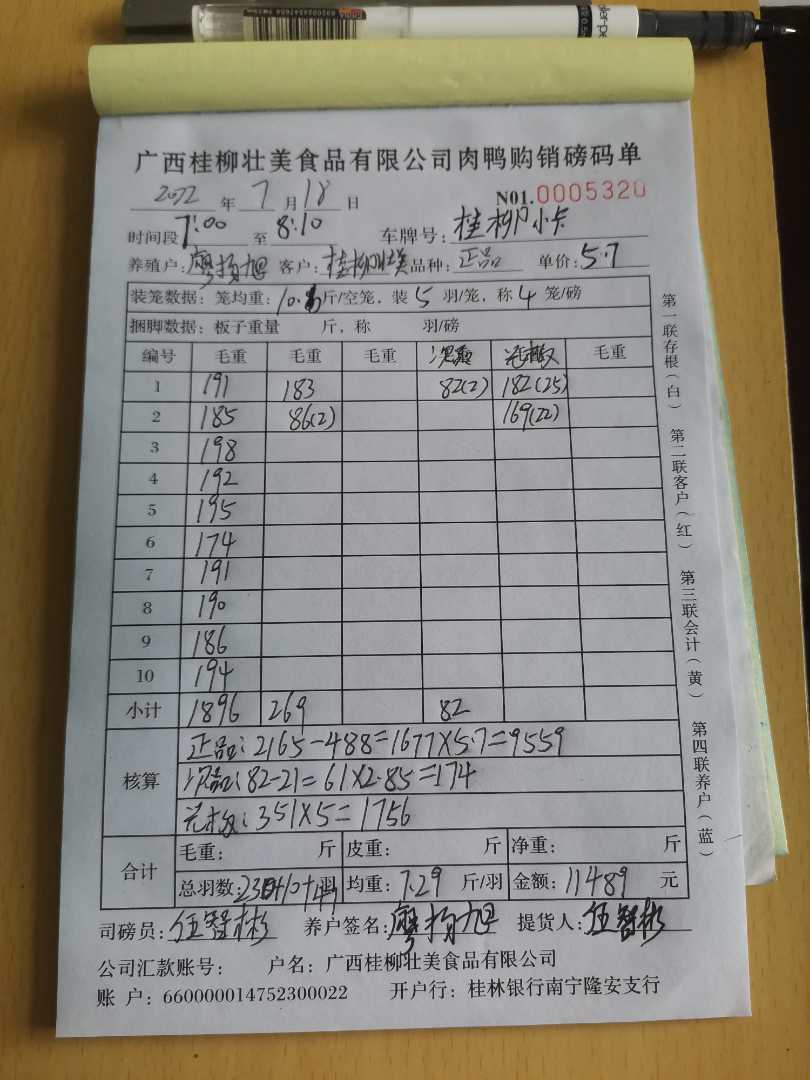 广西桂柳壮美食品有限公司肉鸭购销磅码单
2022 年 7 月 18 日 N01.0005320
时间段 7:00 至 8:10 车牌号: 桂柳小卡
养殖户: 廖杨旭 客户: 桂柳壮美 品种: 正品 单价: 5.7
装笼数据: 笼均重: 斤/空笼, 装 5 羽/笼, 称 4 笼/磅
捆脚数据: 板子重量 斤, 称 羽/磅
编号 毛重 毛重 毛重 毛重
1 191 183 82(2) 182(25)
2 185 86(2) 169(22)
3 198
4 192
5 195
6 174
7 191
8 190
9 186
10 194
小计 1896 269 82
核算
正品: 2165-488=1677×5.7=9559
次品: 82-21=61×2.85=174
351×5=1756
合计
毛重: 斤 皮重: 斤 净重: 斤
总羽数: 均重: 7.29 斤/羽 金额: 11489 元
司磅员: 伍智彬 养户签名: 廖杨旭 提货人: 伍智彬
公司汇款账号: 户名: 广西桂柳壮美食品有限公司
账 户: 660000014752300022 开户行: 桂林银行南宁隆安支行
第一联存根(白) 第二联客户(红) 第三联会计(黄) 第四联养户(蓝)